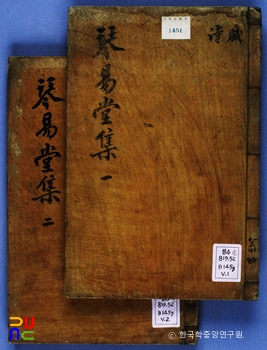 琴易堂集 一
賦
詩
1451
819.52
B145g
V.1
琴易堂集 二
819.52
B145g
V.2
ⓒ 한국학중앙연구원